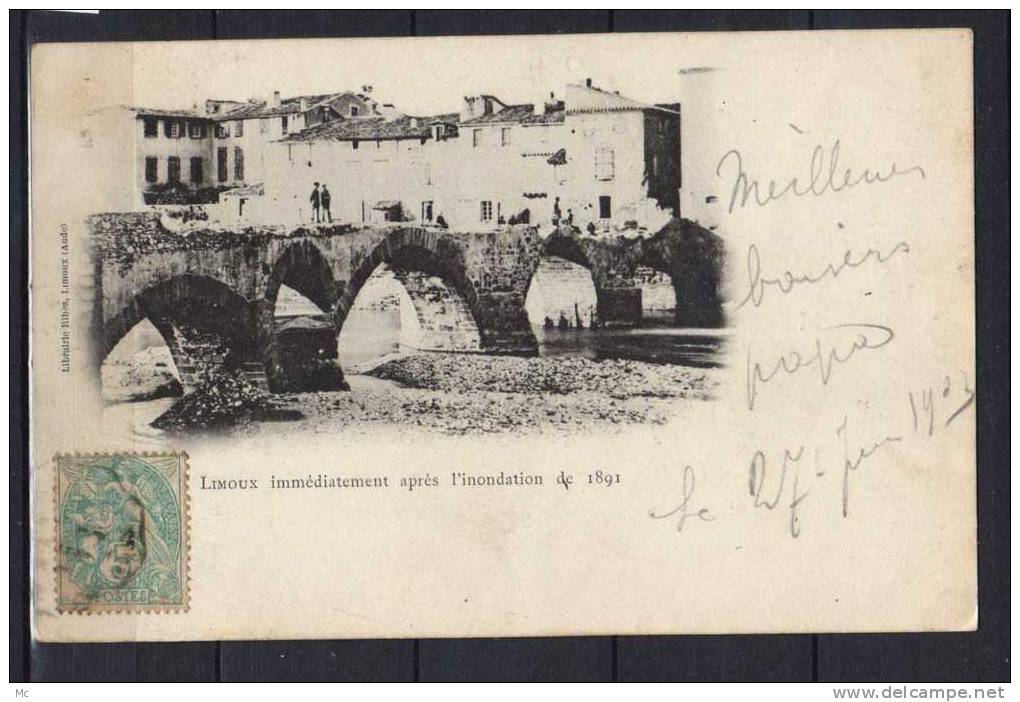 Librairie Ribes, Limoux (Aude)
Meilleurs
baisers
papa
Le 27 Juin 1903
LIMOUX immédiatement après l'inondation de 1891
POSTES
Mc
www.delcampe.net